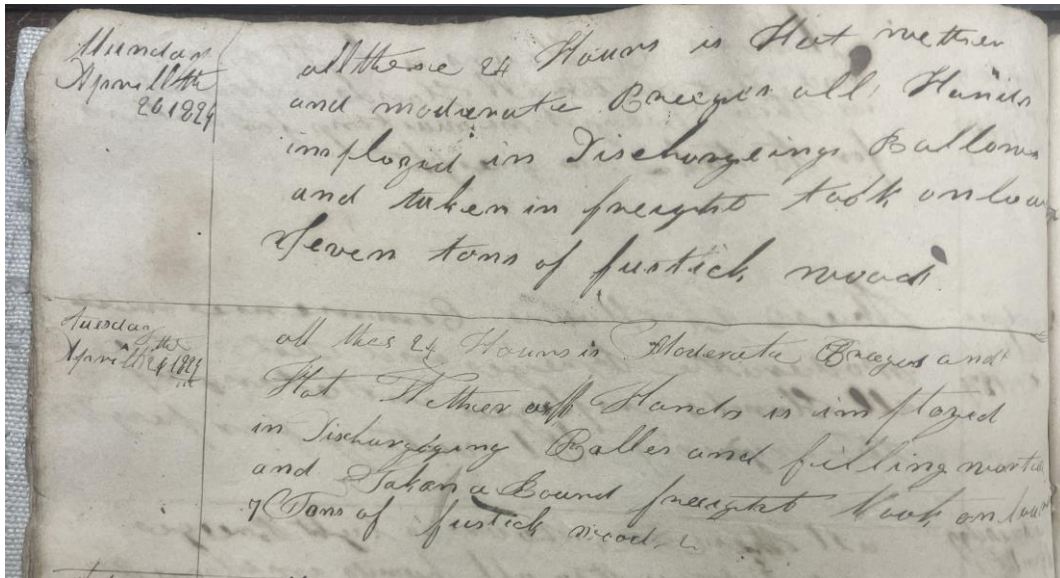 Munday
Aprill the
26 1824
all these 24 Hours is Hot wether
and moderate Breezes all Hands
imployed in Dischargeing Ballows
and taken in freight took on boa
Seven tons of fustick wood
tuesday
Aprill the
1824
all thes 24 Hours is Moderate Breezes and
Hot Wether all Hands is imployed
in Discharging Balles and filling
and Taken a Bound freight took on
7 Tons of fustick wood